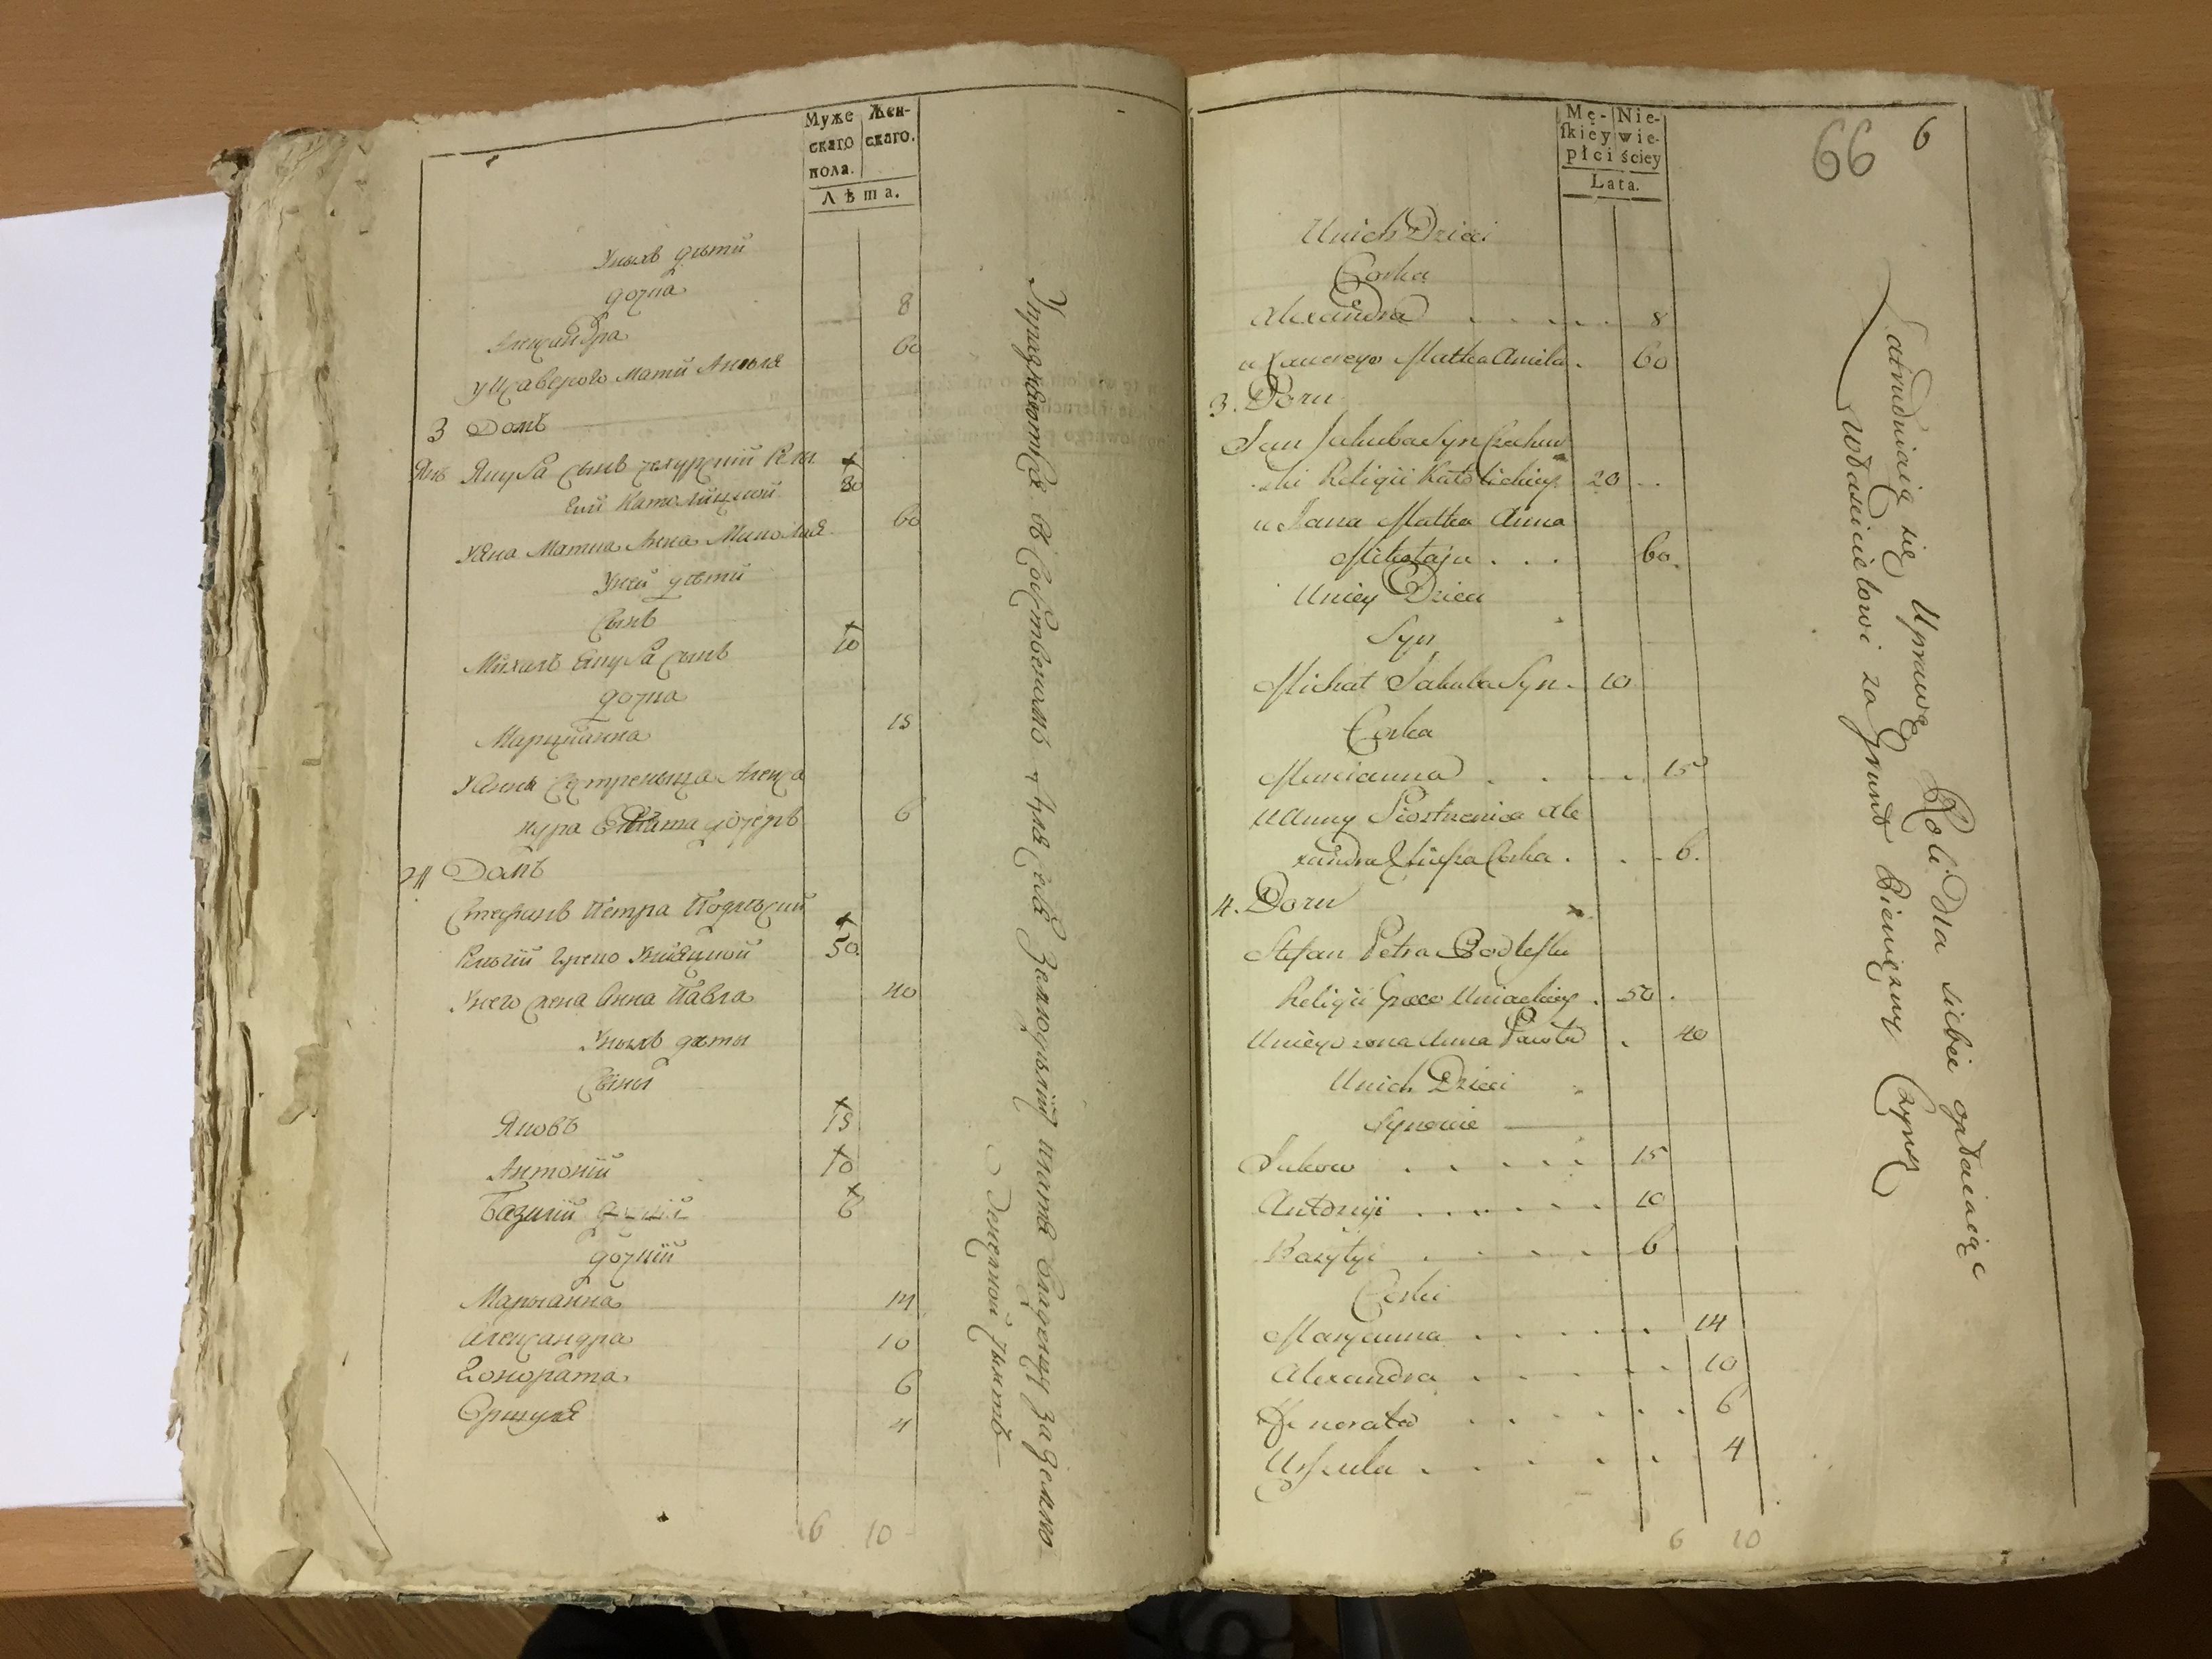 Муже
скаго
пола.
Жен-
скаго.
Лѣта.
Уныхъ дѣти
дочка
Александра 8
У Ксаверого Мати Анеля 60
3 Домъ
Янъ Якуба сынъ
Католицкой 30
У Яна Матка Анна Миколая 60
Уней дѣти
Сынъ
Михалъ Якуба сынъ 10
дочка
Марцианна 15
У Анны Сестреньца Алекса
ндра дочерь 6
4 Домъ
Стефанъ Петра Подлѣский
Религии Греко Униацкой 50
Унего жена Анна Павла 40
Уныхъ дѣти
Сыны
Яковъ 15
Антоний 10
Базилий 6
дочкии
Марыанна 14
Александра 10
Гонората 6
Оршуля 4
6 10
Упражняются в Собственномъ для себя Земледѣлии платя владельцу за Землю
Денежной чыншъ
Mę-
skiey
płci
Nie-
wie-
ściey
Lata.
66 6
Unich Dzieci
Corka
Alexandra 8
u Xawerego Matka Aniela 60
3. Dom
Jan Jakuba Syn
ski Religii Katolickiey 20
u Jana Matka Anna
Mikołaja 60
Uniey Dzieci
Syn
Michał Jakuba Syn 10
Corka
Marianna 15
U Anny Siostrzenica Ale
xandra Corka 6.
4. Dom
Stefan Petra Podleski
Religii Greco Uniackiey 50
Uniego zona Anna Pawła 40
Unich Dzieci
Synowie
Jakow 15
Antonyi 10
Bazylyi 6
Corki
Maryanna 14
Alexandra 10
Honorata 6
Urszula 4
6 10
Zatrudniaią się Uprawą Roli dla siebie opłacaiąc
Włascicielowi za Grunt Pieniężny Czynsz